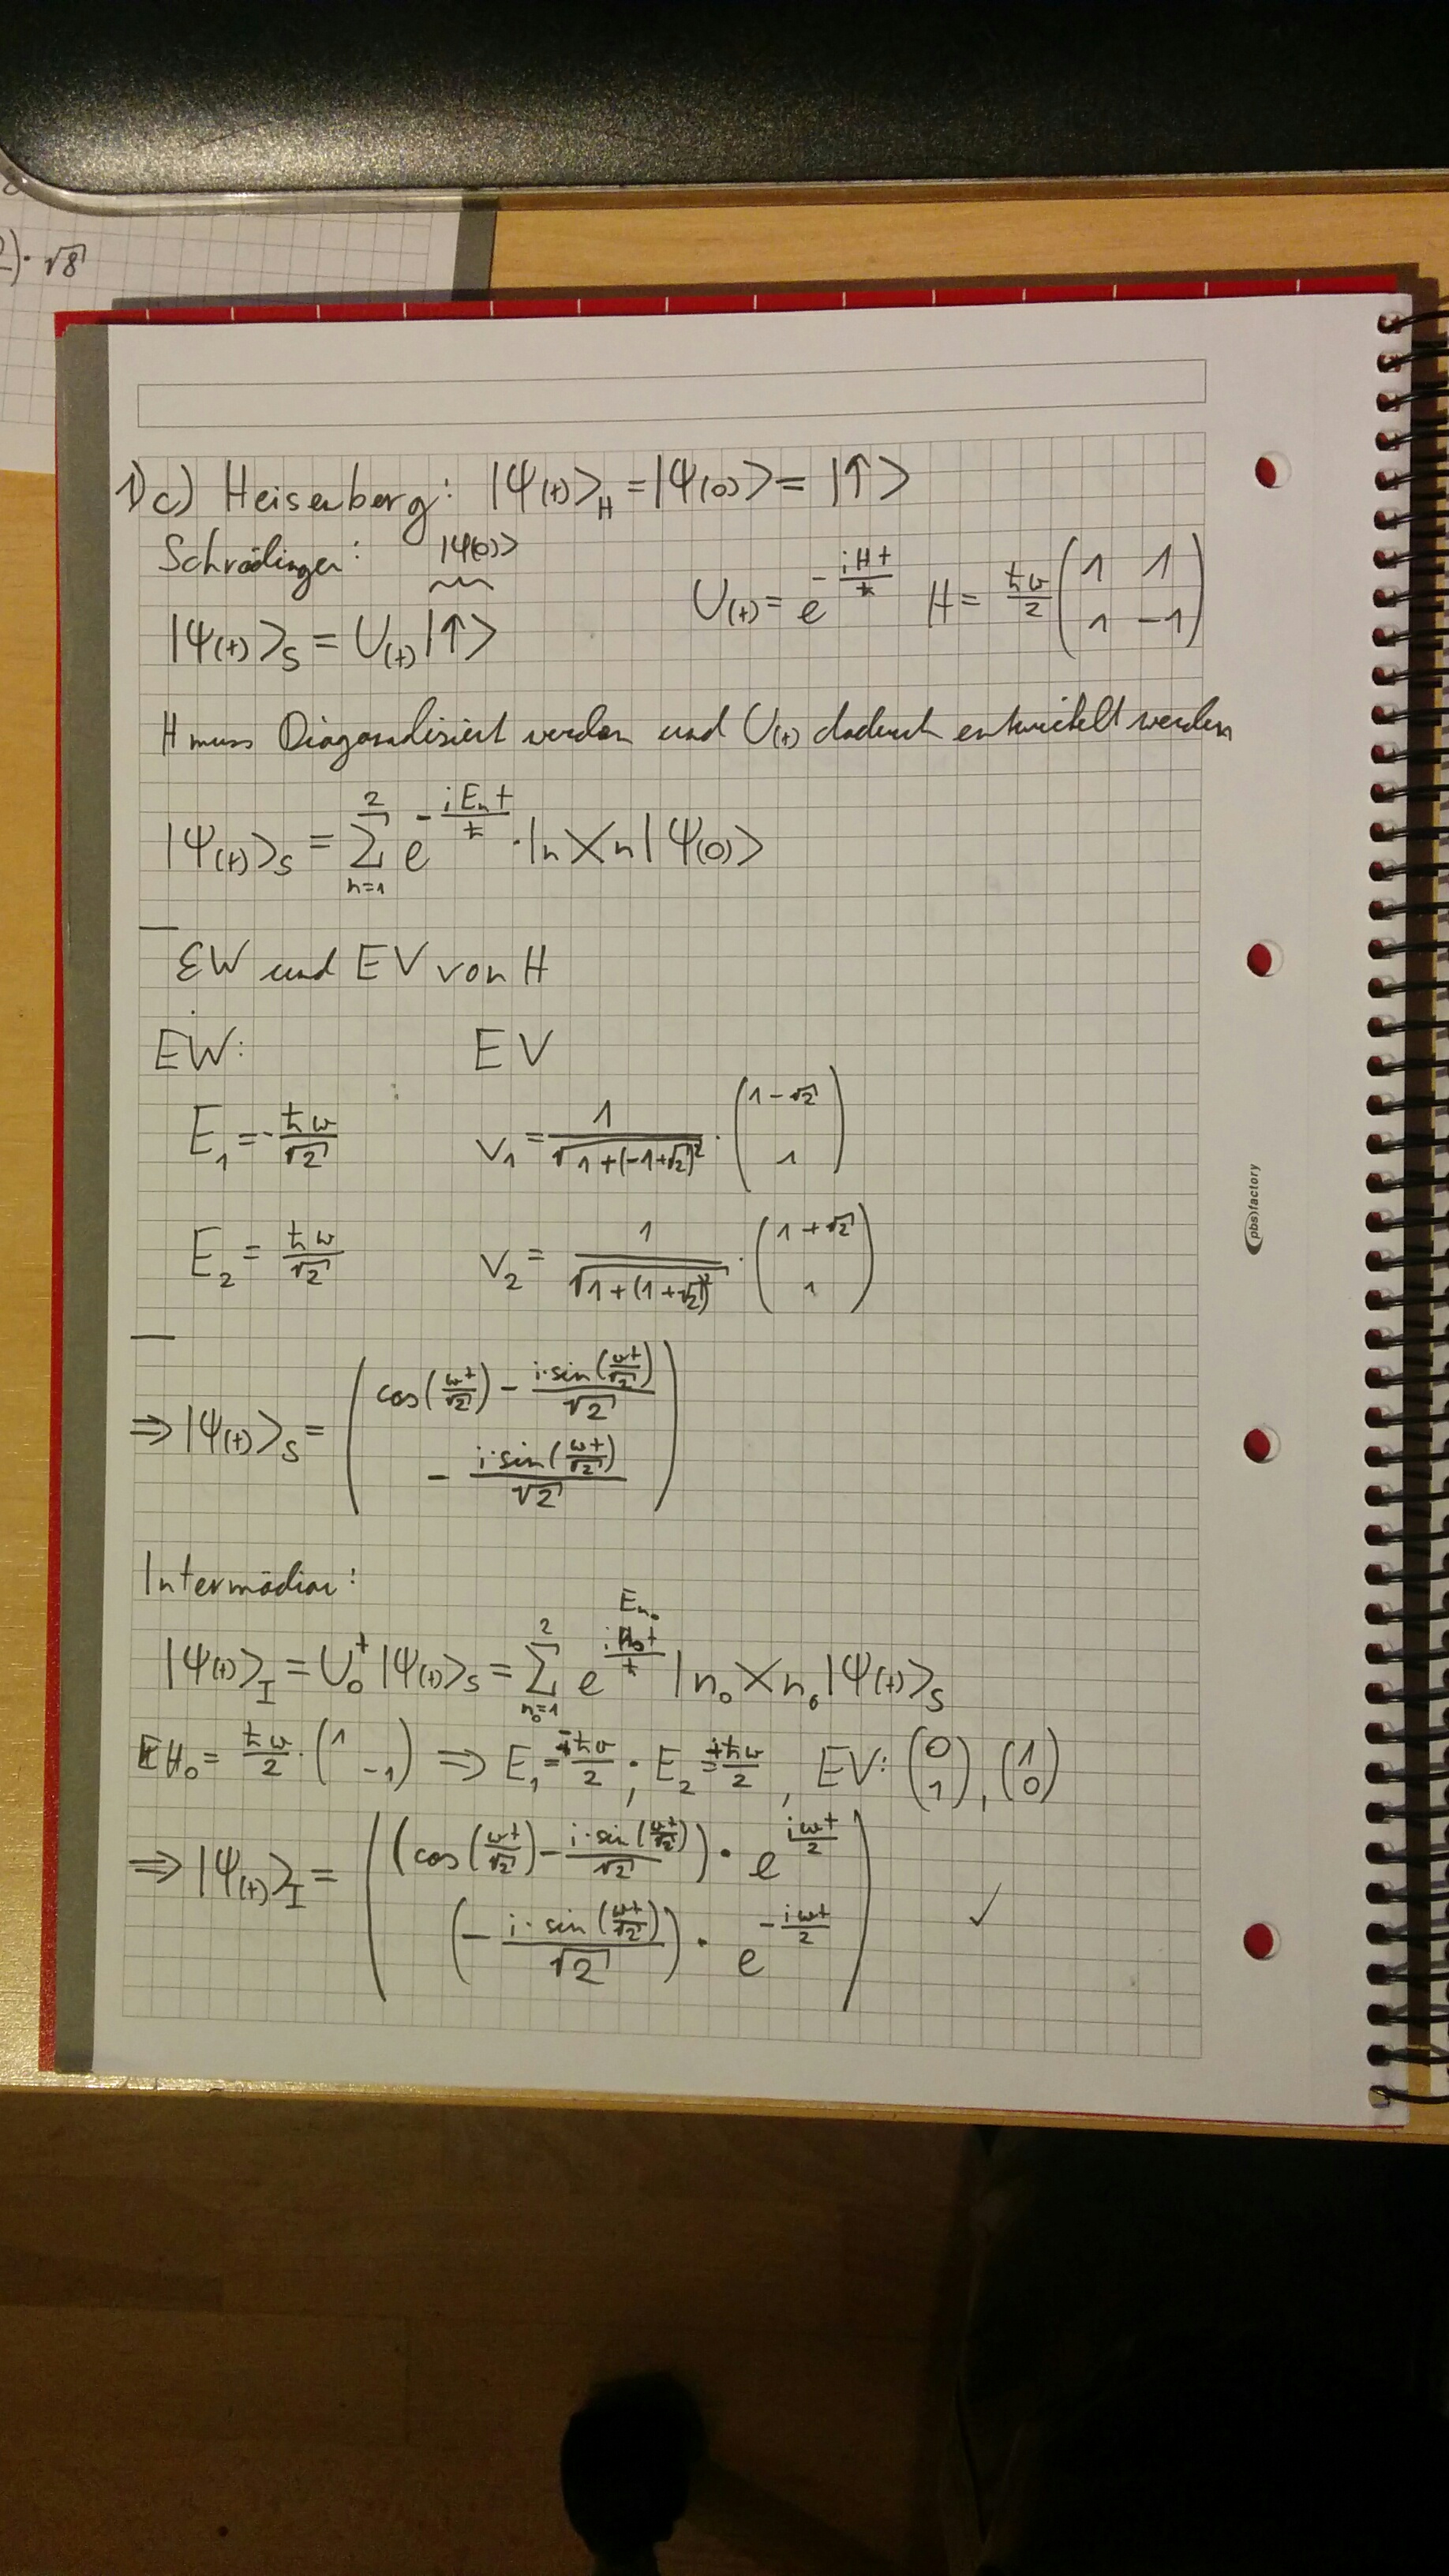 2)·√8
1) c) Heisenberg: |Ψ(t)>_H = |Ψ(0)> = |↑>
Schrödinger: |Ψ(0)>
|Ψ(t)>_S = U(t)|↑> U(t) = e^{-iHt/ħ} H = ħω/2 (1 1; 1 -1)
H muss Diagonalisiert werden und U(t) dadurch entwickelt werden
|Ψ(t)>_S = Σ_{n=1}^{2} e^{-iE_n t/ħ} · |n><n|Ψ(0)>
EW und EV von H
EW: EV
E_1 = -ħω/√2 v_1 = 1/√(1+(-1+√2)²) · (1-√2; 1)
E_2 = ħω/√2 v_2 = 1/√(1+(1+√2)²) · (1+√2; 1)
⇒ |Ψ(t)>_S = (cos(ωt/√2) - i·sin(ωt/√2)/√2; - i·sin(ωt/√2)/√2)
Intermediär:
E_{n_0}
|Ψ(t)>_I = U_0^† |Ψ(t)>_S = Σ_{n_0=1}^{2} e^{iH_0t/ħ} |n_0><n_0|Ψ(t)>_S
H_0 = ħω/2 · (1 ; -1) ⇒ E_1 = -ħω/2 ; E_2 = +ħω/2 , EV: (0; 1), (1; 0)
⇒ |Ψ(t)>_I = ((cos(ωt/√2) - i·sin(ωt/√2)/√2) · e^{iωt/2}; (- i·sin(ωt/√2)/√2) · e^{-iωt/2}) ✓
(pbs)factory